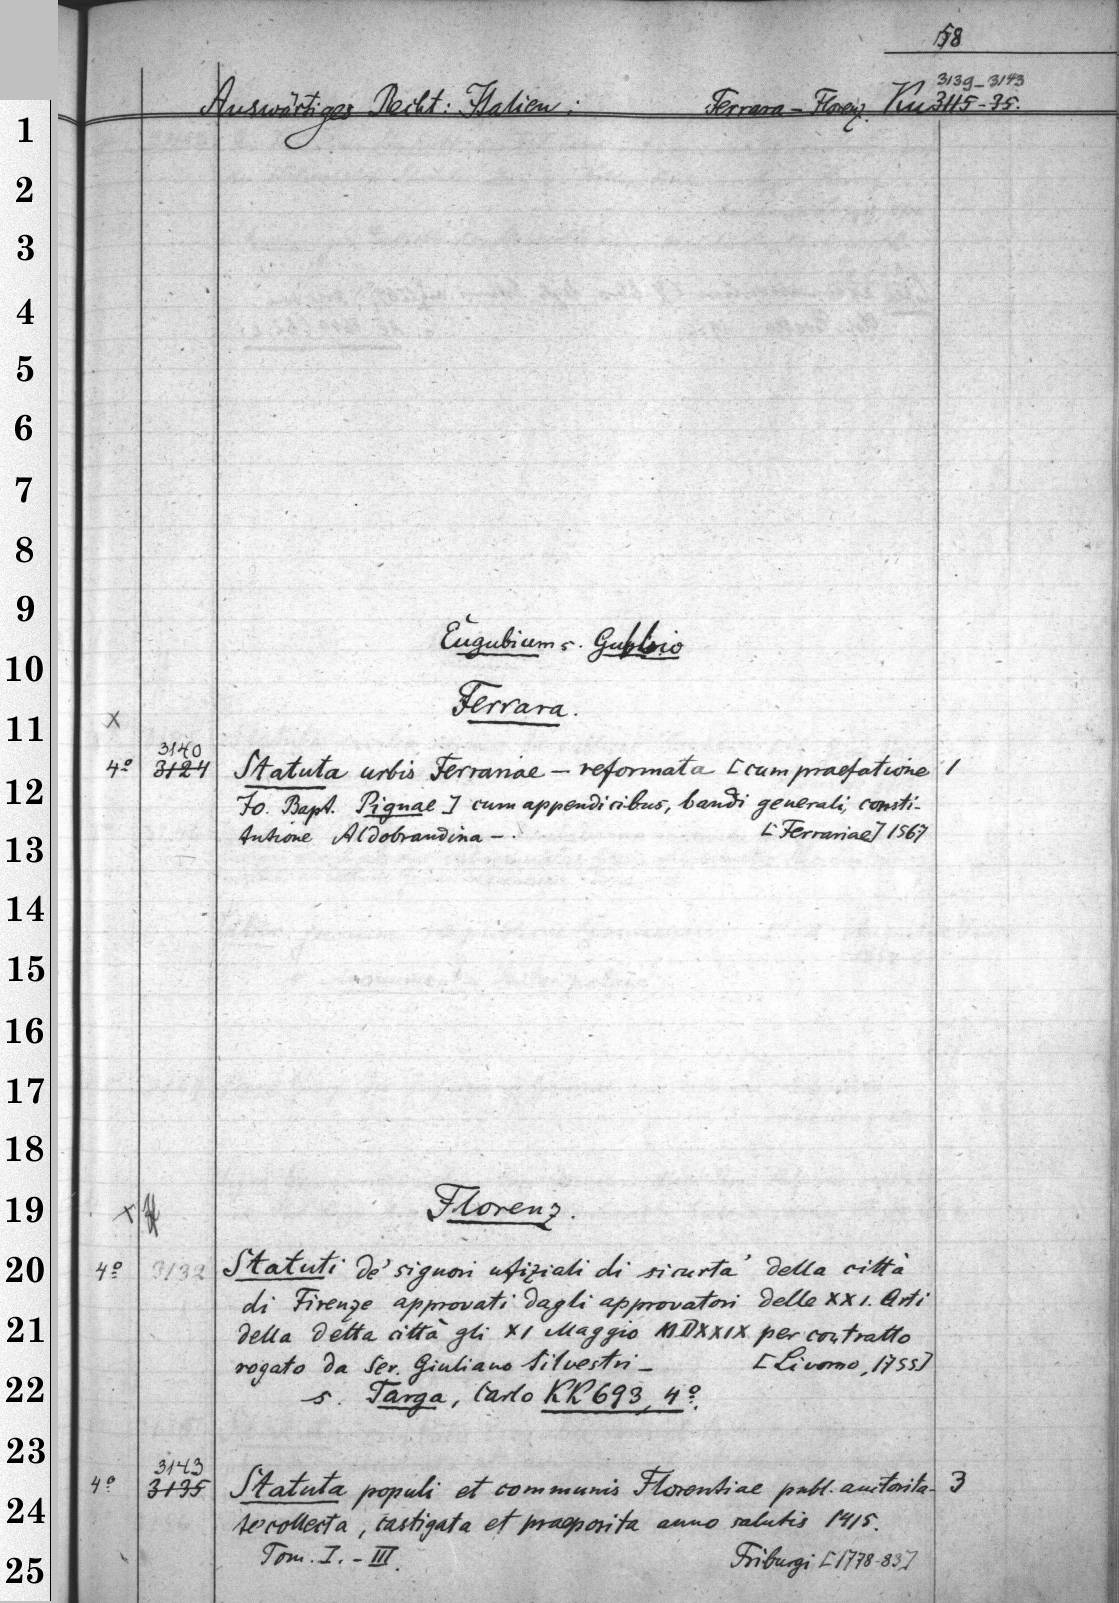 58
3139-3143
Auswärtiges Recht: Italien: Ferrara - Florenz. Ku 3115-35.
1
2
3
4
5
6
7
8
9
10
11
12
13
14
15
16
17
18
19
20
21
22
23
24
25
Eugubium s. Gubbio
Ferrara.
x
3140
4º 3124 Statuta urbis Ferrariae — reformata [cum praefatione 1
Jo. Bapt. Pignae] cum appendicibus, bandi generali, consti-
tutione Aldobrandina —. [Ferrariae] 1567
x
Florenz.
4º 3132 Statuti de' signori ufiziali di sicurta' della città
di Firenze approvati dagli approvatori delle XXI. Arti
della detta città gli XI Maggio MDXXIX per contratto
rogato da Ser. Giuliano Silvestri — [Livorno, 1755]
s. Targa, Carlo KK 693, 4º.
3143
4º 3135 Statuta populi et communis Florentiae publ. auctorita- 3
te collecta, castigata et praeposita anno salutis 1415.
Tom. I. - III. Friburgi [1778-83]